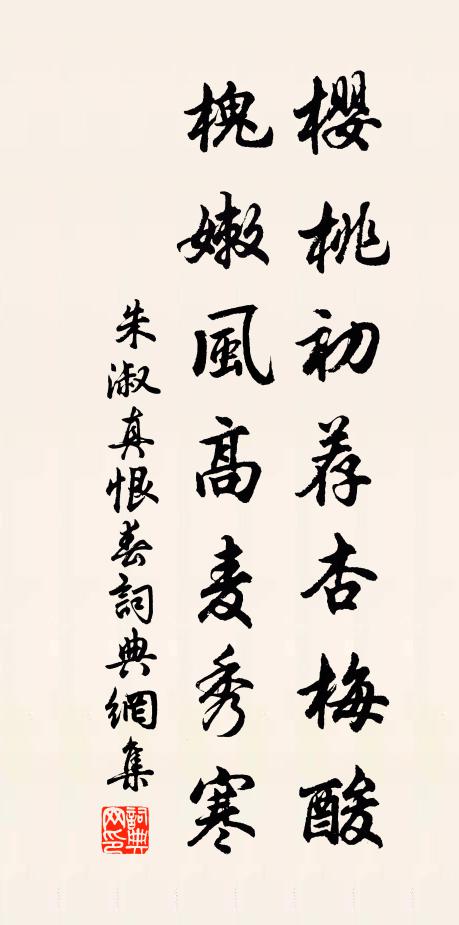 櫻桃初荐杏梅酸
槐嫩風高麦秀寒
朱淑真恨春詞典網集
詞典網印